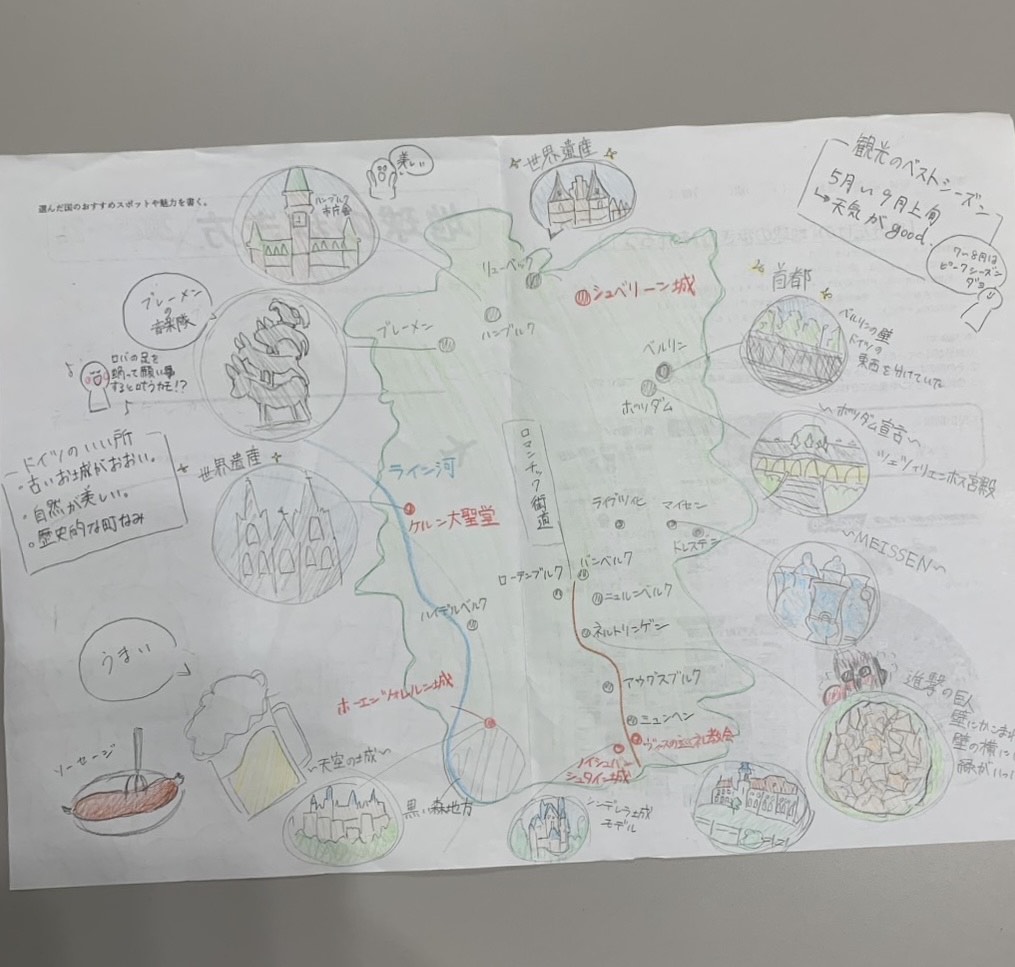 選んだ国のおすすめスポットや魅力を書く。
ハンブルク
市庁舎
美しい
世界遺産
観光のベストシーズン
5月い9月上旬
→天気がgood.
7〜8月は
ピークシーズン
ダヨ
ブレーメン
の
音楽隊
リューベック
シュベリーン城
ハンブルク
首都
ベルリンの壁
ドイツの
東西を分けていた
ブレーメン
ベルリン
ポツダム
ロバの足を
触って願い事
すると叶うカモ!?
〜ポツダム宣言〜
ツェツィリエンホーフ宮殿
ドイツのいい所
・古いお城がおおい。
・自然が美しい。
・歴史的な町なみ
世界遺産
ライン河
ロマンチック街道
ケルン大聖堂
ライプツィヒ
マイセン
ドレスデン
〜MEISSEN〜
ローテンブルク
バンベルク
ハイデルベルク
ニュルンベルク
ネルトリンゲン
うまい
ホーエンツォレルン城
アウグスブルク
ミュンヘン
進撃の巨人
壁にかこまれ
壁の横に
緑がいっ
ソーセージ
〜天空の城〜
黒い森地方
ノイシュバン
シュタイン城
シンデレラ城
モデル